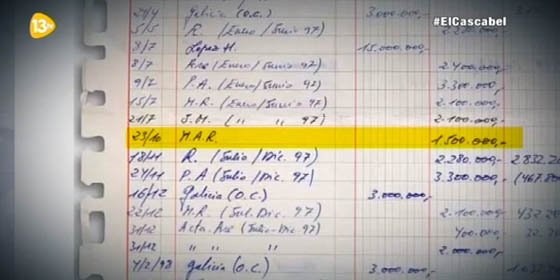 13tv
#ElCascabel
24/4 Galicia (O.C.) 3.000.000,-
5/5 R. (Enero/Junio 97) 2.280.000,-
8/7 Lopez H. 15.000.000,-
8/7 Ace (Enero/Junio 97) 2.400.000,-
9/7 P.A. (Enero/Junio 97) 3.300.000,-
15/7 M.R. (Enero/Junio 97) 2.100.000,-
21/7 J.M. ( " " 97) 2.100.000,-
23/10 M.A.R. 1.500.000,-
18/11 R. (Julio/Dic. 97) 2.280.000,- 2.832.20
24/11 P.A (Julio/Dic. 97) 3.300.000,- (467.80
16/12 Galicia (O.C.) 3.000.000,-
22/12 M.R. (Jul-Dic. 97) 2.100.000,- 432.20
31/12 Acta. Ace (Julio-Dic. 97) 400.000,- 32.20
31/12 " " " 2.000.000,-
4/2/98 Galicia (O.C.) 3.000.000,-